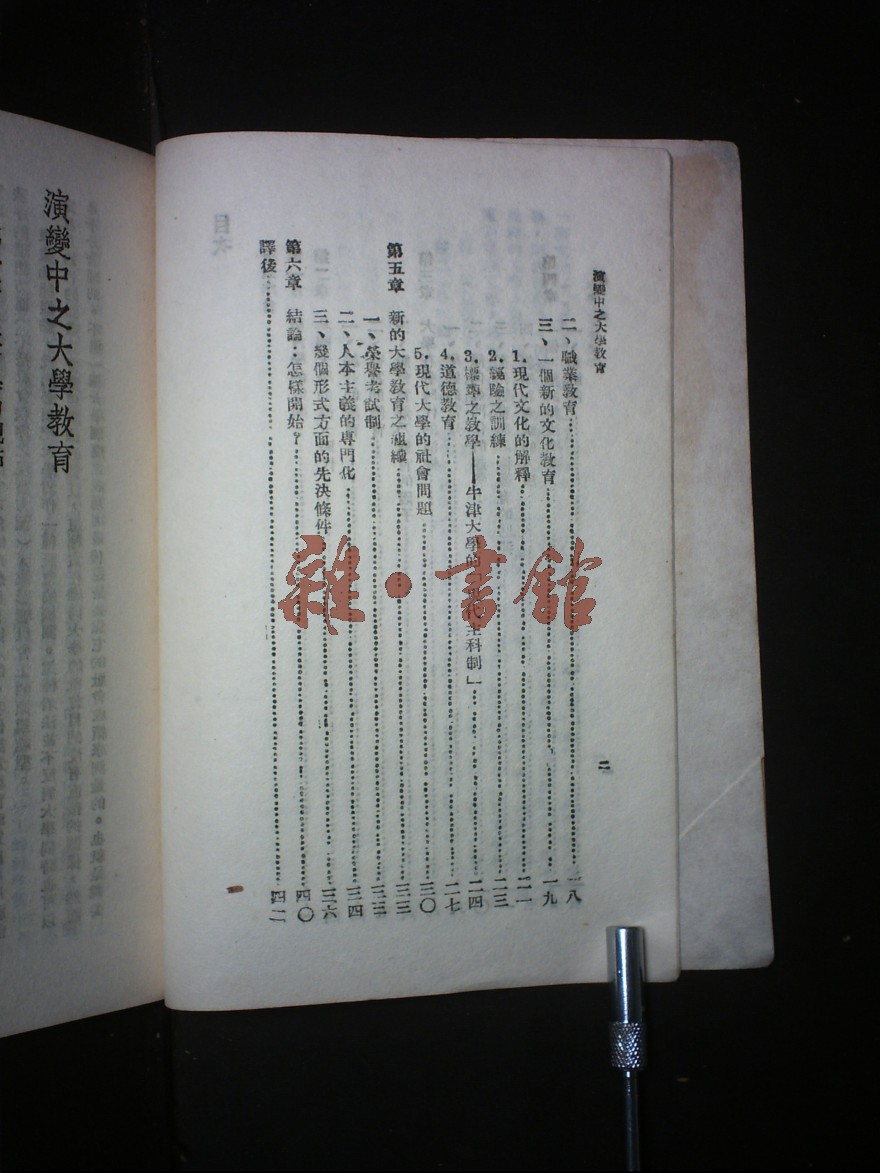 演變中之大學教育
二
二、職業教育……一八
三、一個新的文化教育……一九
1. 現代文化的解釋……二一
2. 經驗之訓練……二三
3. 標準之教學——牛津大學的「 代主科制」……二四
4. 道德教育……二七
5. 現代大學的社會問題……三〇
第五章 新的大學教育之組織……三三
一、榮譽考試制……三三
二、人本主義的專門化……三四
三、幾個形式方面的先決條件……三六
第六章 結論：怎樣開始？……四〇
譯後……四二
雜·書館
演變中之大學教育